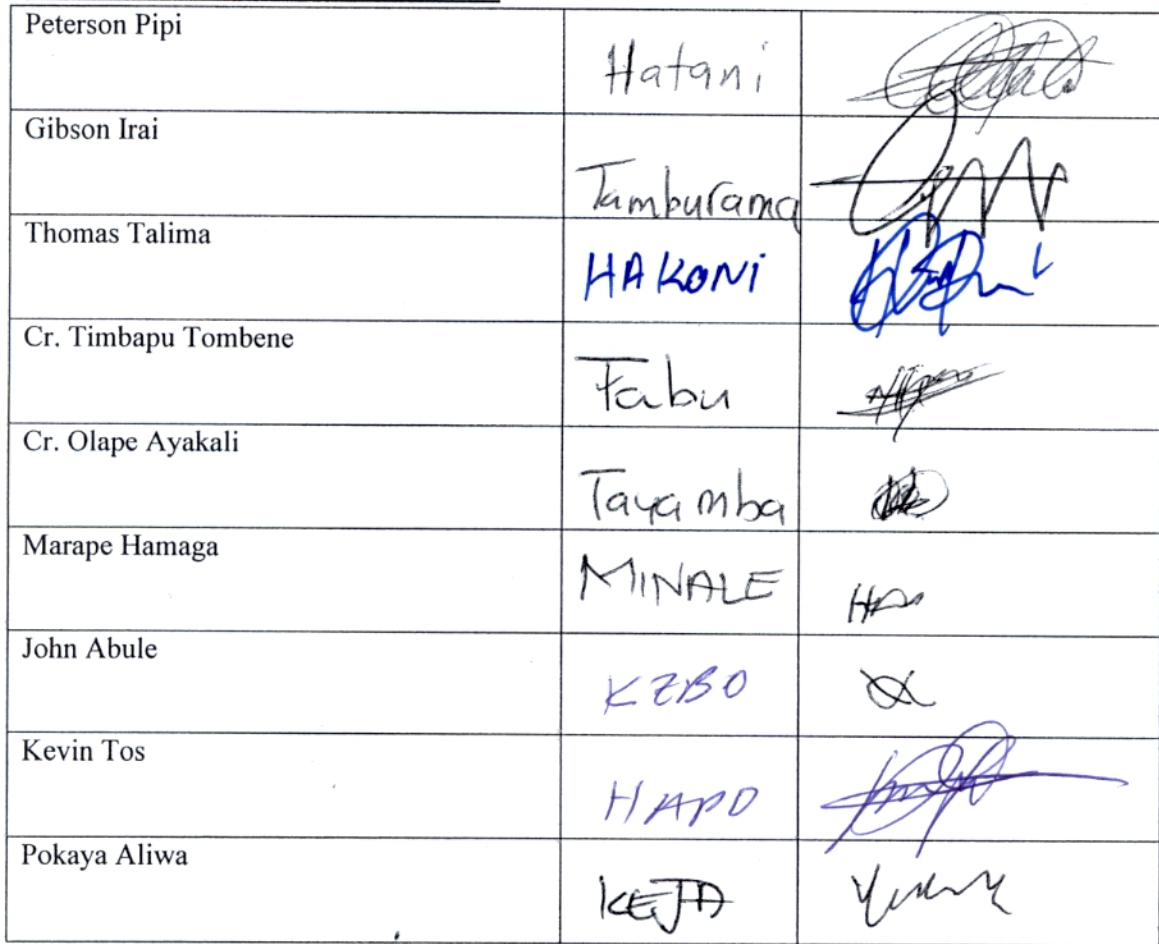 Peterson Pipi Hatani
Gibson Irai Tamburama
Thomas Talima HAKONi
Cr. Timbapu Tombene Fabu
Cr. Olape Ayakali Tayamba
Marape Hamaga MINALE
John Abule KEBO
Kevin Tos HAPO
Pokaya Aliwa